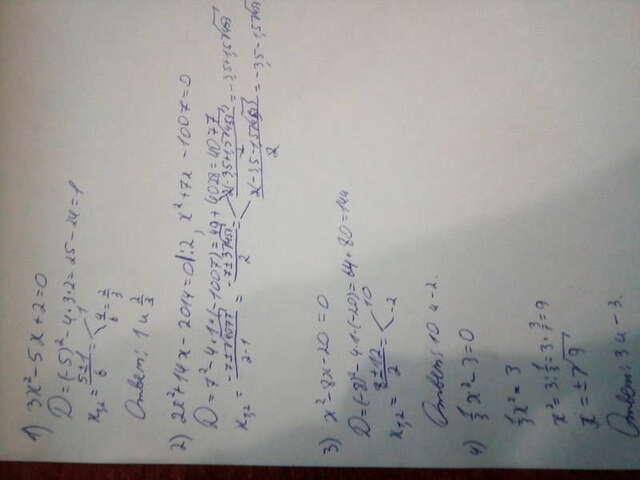 1) 3x²-5x+2=0
D=(-5)²-4·3·2=25-24=1
x₁,₂=(5±1)/6= 1 4/6=2/3
Ответ: 1 и 2/3
2) 2x²+14x-2014=0|:2, x²+7x-1007=0
D=7²-4·1·(-1007)=49+4028=4077
x₁,₂=(-7±√4077)/(2·1)=(-7±3√453)/2= =-3,5+1,5√453
=-3,5-1,5√453
3) x²-8x-20=0
D=(-8)²-4·1·(-20)=64+80=144
x₁,₂=(8±12)/2= 10 -2
Ответ: 10 и -2.
4) 1/3x²-3=0
1/3x²=3
x²=3:1/3=3·3/1=9
x=±√9
Ответ: 3 и -3.